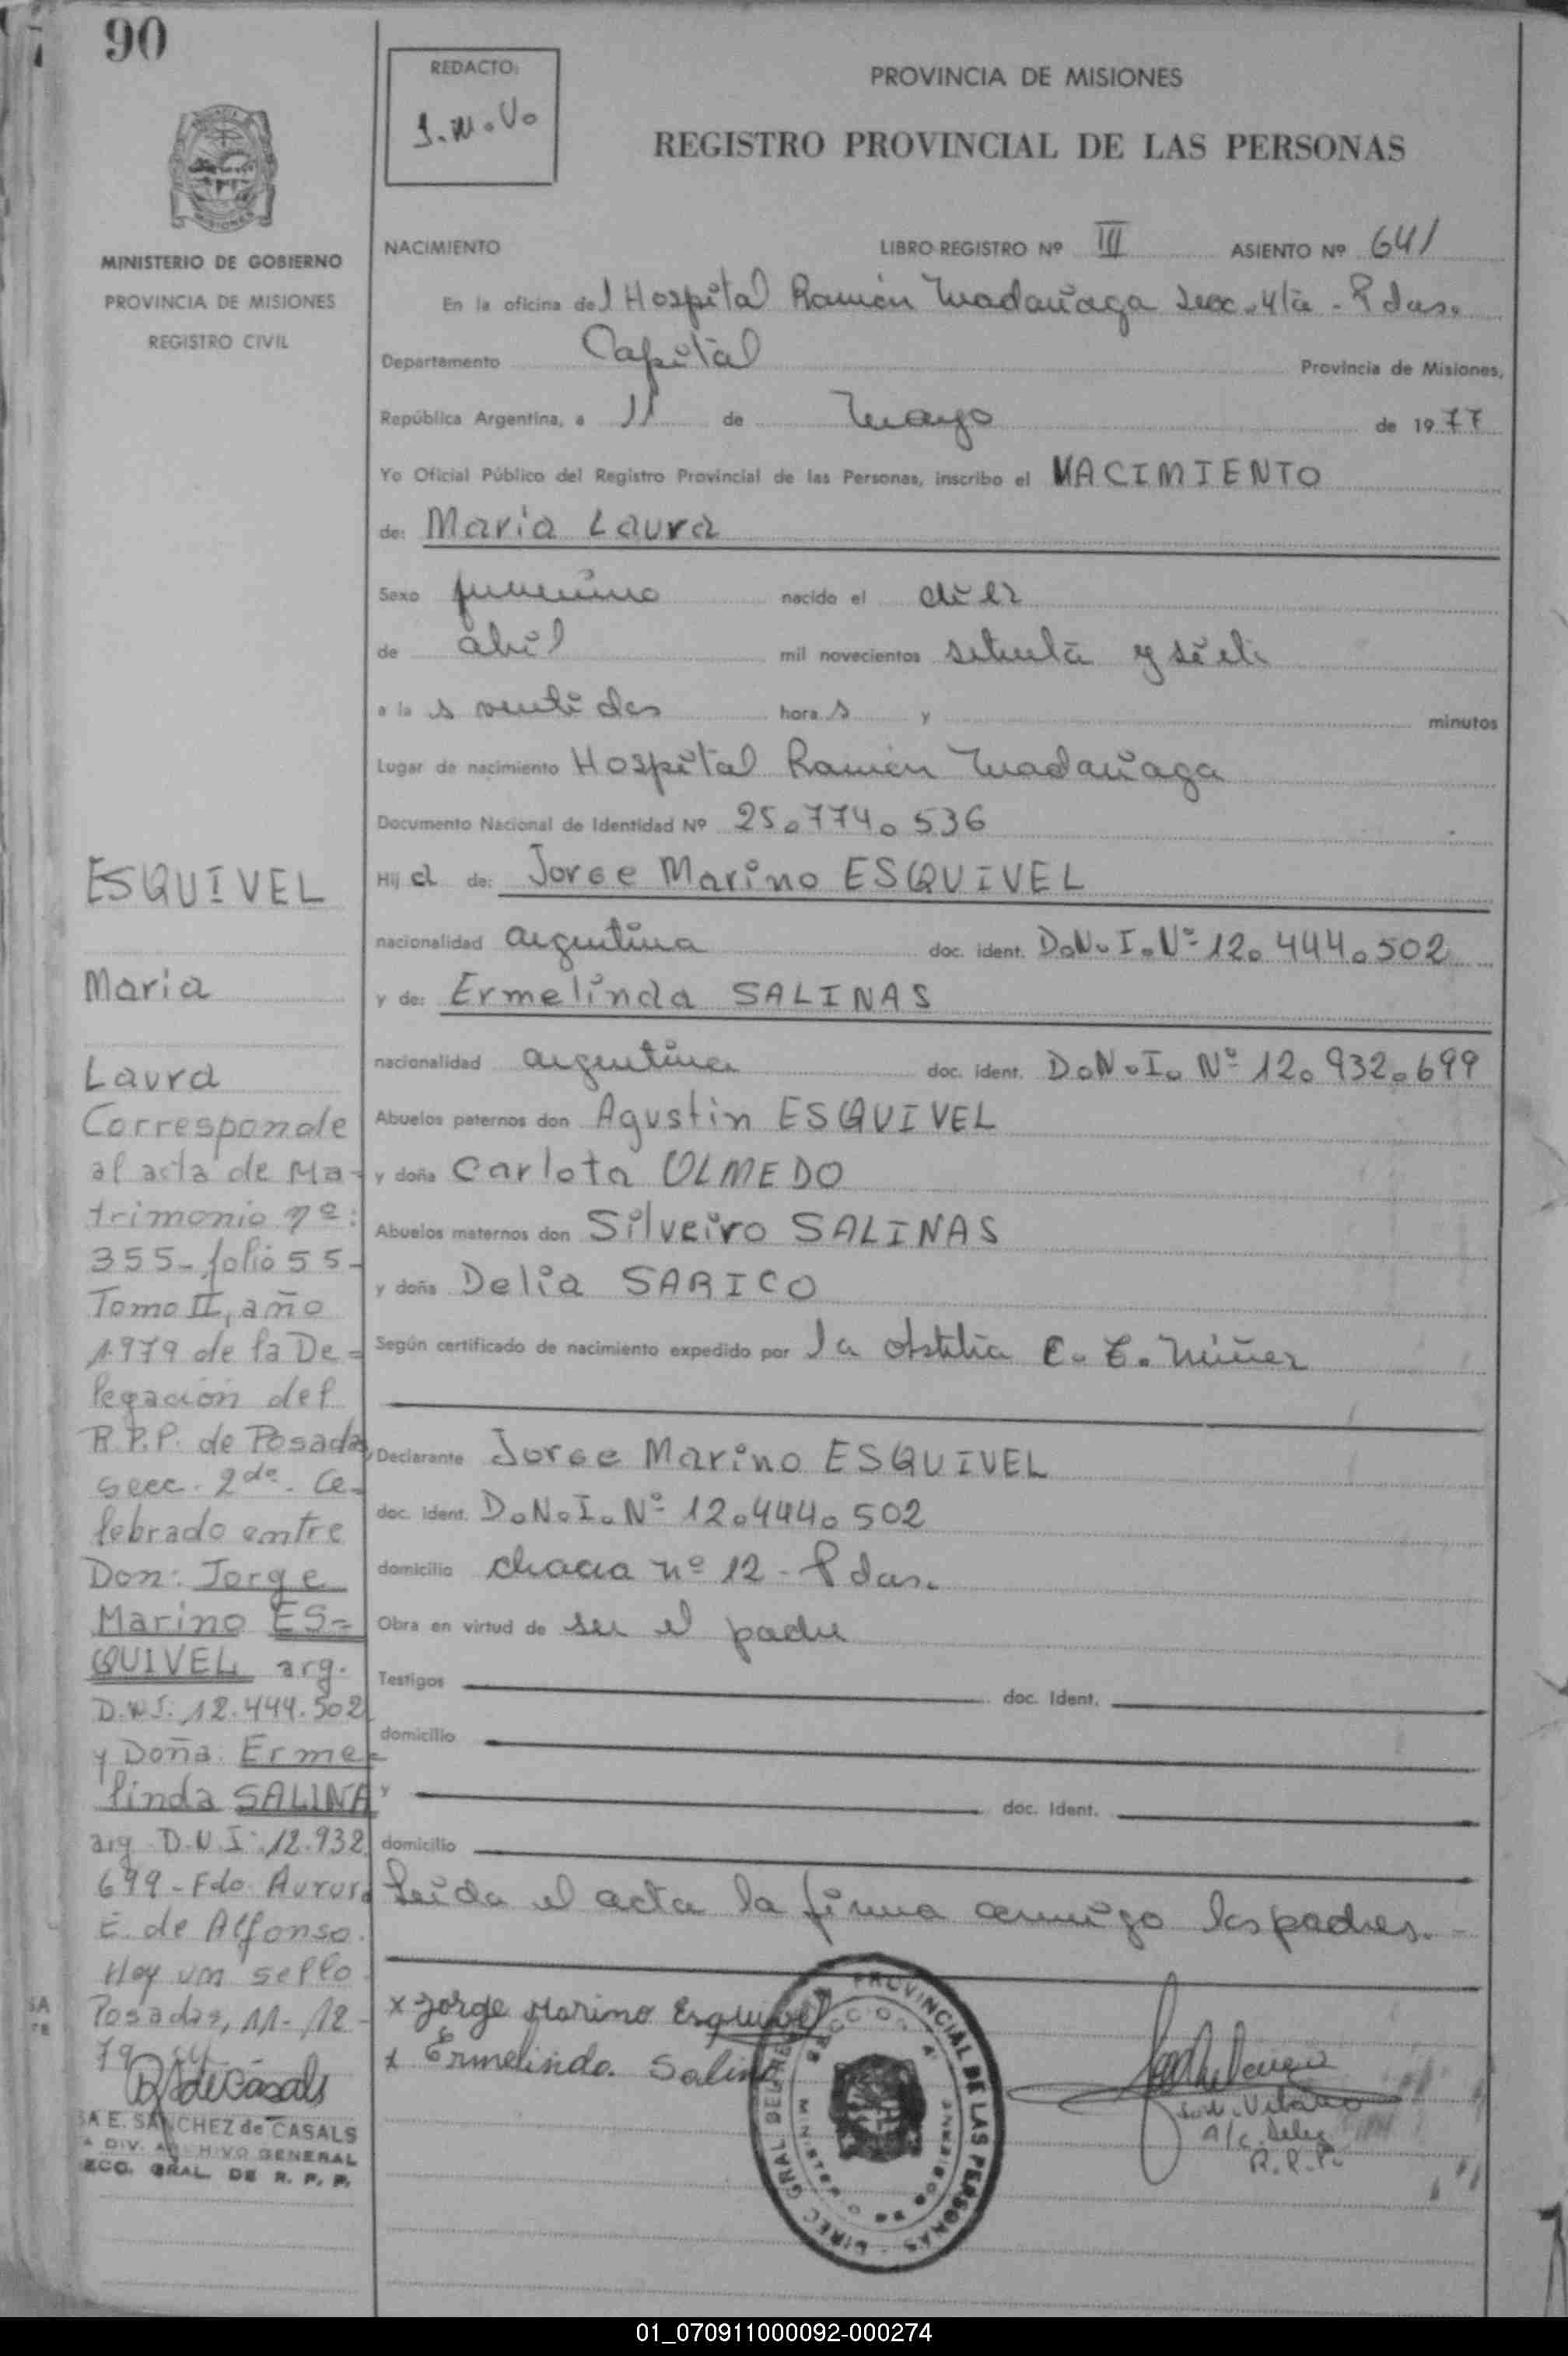 90
REDACTO:
J.M.V.
PROVINCIA DE MISIONES
REGISTRO PROVINCIAL DE LAS PERSONAS
MINISTERIO DE GOBIERNO
PROVINCIA DE MISIONES
REGISTRO CIVIL
NACIMIENTO LIBRO REGISTRO Nº III ASIENTO Nº 641
En la oficina del Hospital Ramón Madariaga Secc. 4ta - Pdas.
Departamento Capital Provincia de Misiones,
República Argentina, a 11 de Mayo de 1977
Yo Oficial Público del Registro Provincial de las Personas, inscribo el NACIMIENTO
de: Maria Laura
Sexo femenino nacido el diez
de abril mil novecientos setenta y siete
a las veintidos horas y minutos
Lugar de nacimiento Hospital Ramón Madariaga
Documento Nacional de Identidad Nº 25.774.536
Hija de: Jorge Marino ESQUIVEL
nacionalidad argentina doc. ident. D.N.I.Nº 12.444.502
y de: Ermelinda SALINAS
nacionalidad argentina doc. ident. D.N.I. Nº 12.932.699
Abuelos paternos don Agustin ESQUIVEL
y doña Carlota OLMEDO
Abuelos maternos don Silveiro SALINAS
y doña Delia SARICO
Según certificado de nacimiento expedido por la obstétra C. C. Núñez
Declarante Jorge Marino ESQUIVEL
doc. ident. D.N.I. Nº 12.444.502
domicilio chacra nº 12 - Pdas.
Obra en virtud de ser el padre
Testigos doc. Ident.
domicilio
y doc. Ident.
domicilio
Leida el acta la firma conmigo los padres.-
x Jorge Marino Esquivel
x Ermelinda Salina
DIREC. GRAL. DEL REG. PROVINCIAL DE LAS PERSONAS
MINISTERIO DE GOBIERNO
SECCION 4ª
A/c. Deleg.
R.P.P.
ESQUIVEL
Maria
Laura
Corresponde
al acta de Ma-
trimonio nº:
355- folio 55-
Tomo II, año
1979 de la De=
legación del
R.P.P. de Posadas,
secc. 2da. Ce-
lebrado entre
Don: Jorge
Marino ES=
QUIVEL arg.
D.N.I. 12.444.502
y Doña: Erme=
linda SALINA
arg D.N.I. 12.932
699 - Fdo Aurora
E. de Alfonso.
Hay un sello
Posadas, 11-12-
79
SA E. SANCHEZ de CASALS
DIV. ARCHIVO GENERAL
ECC. GRAL. DE R. P. P.
01_070911000092-000274